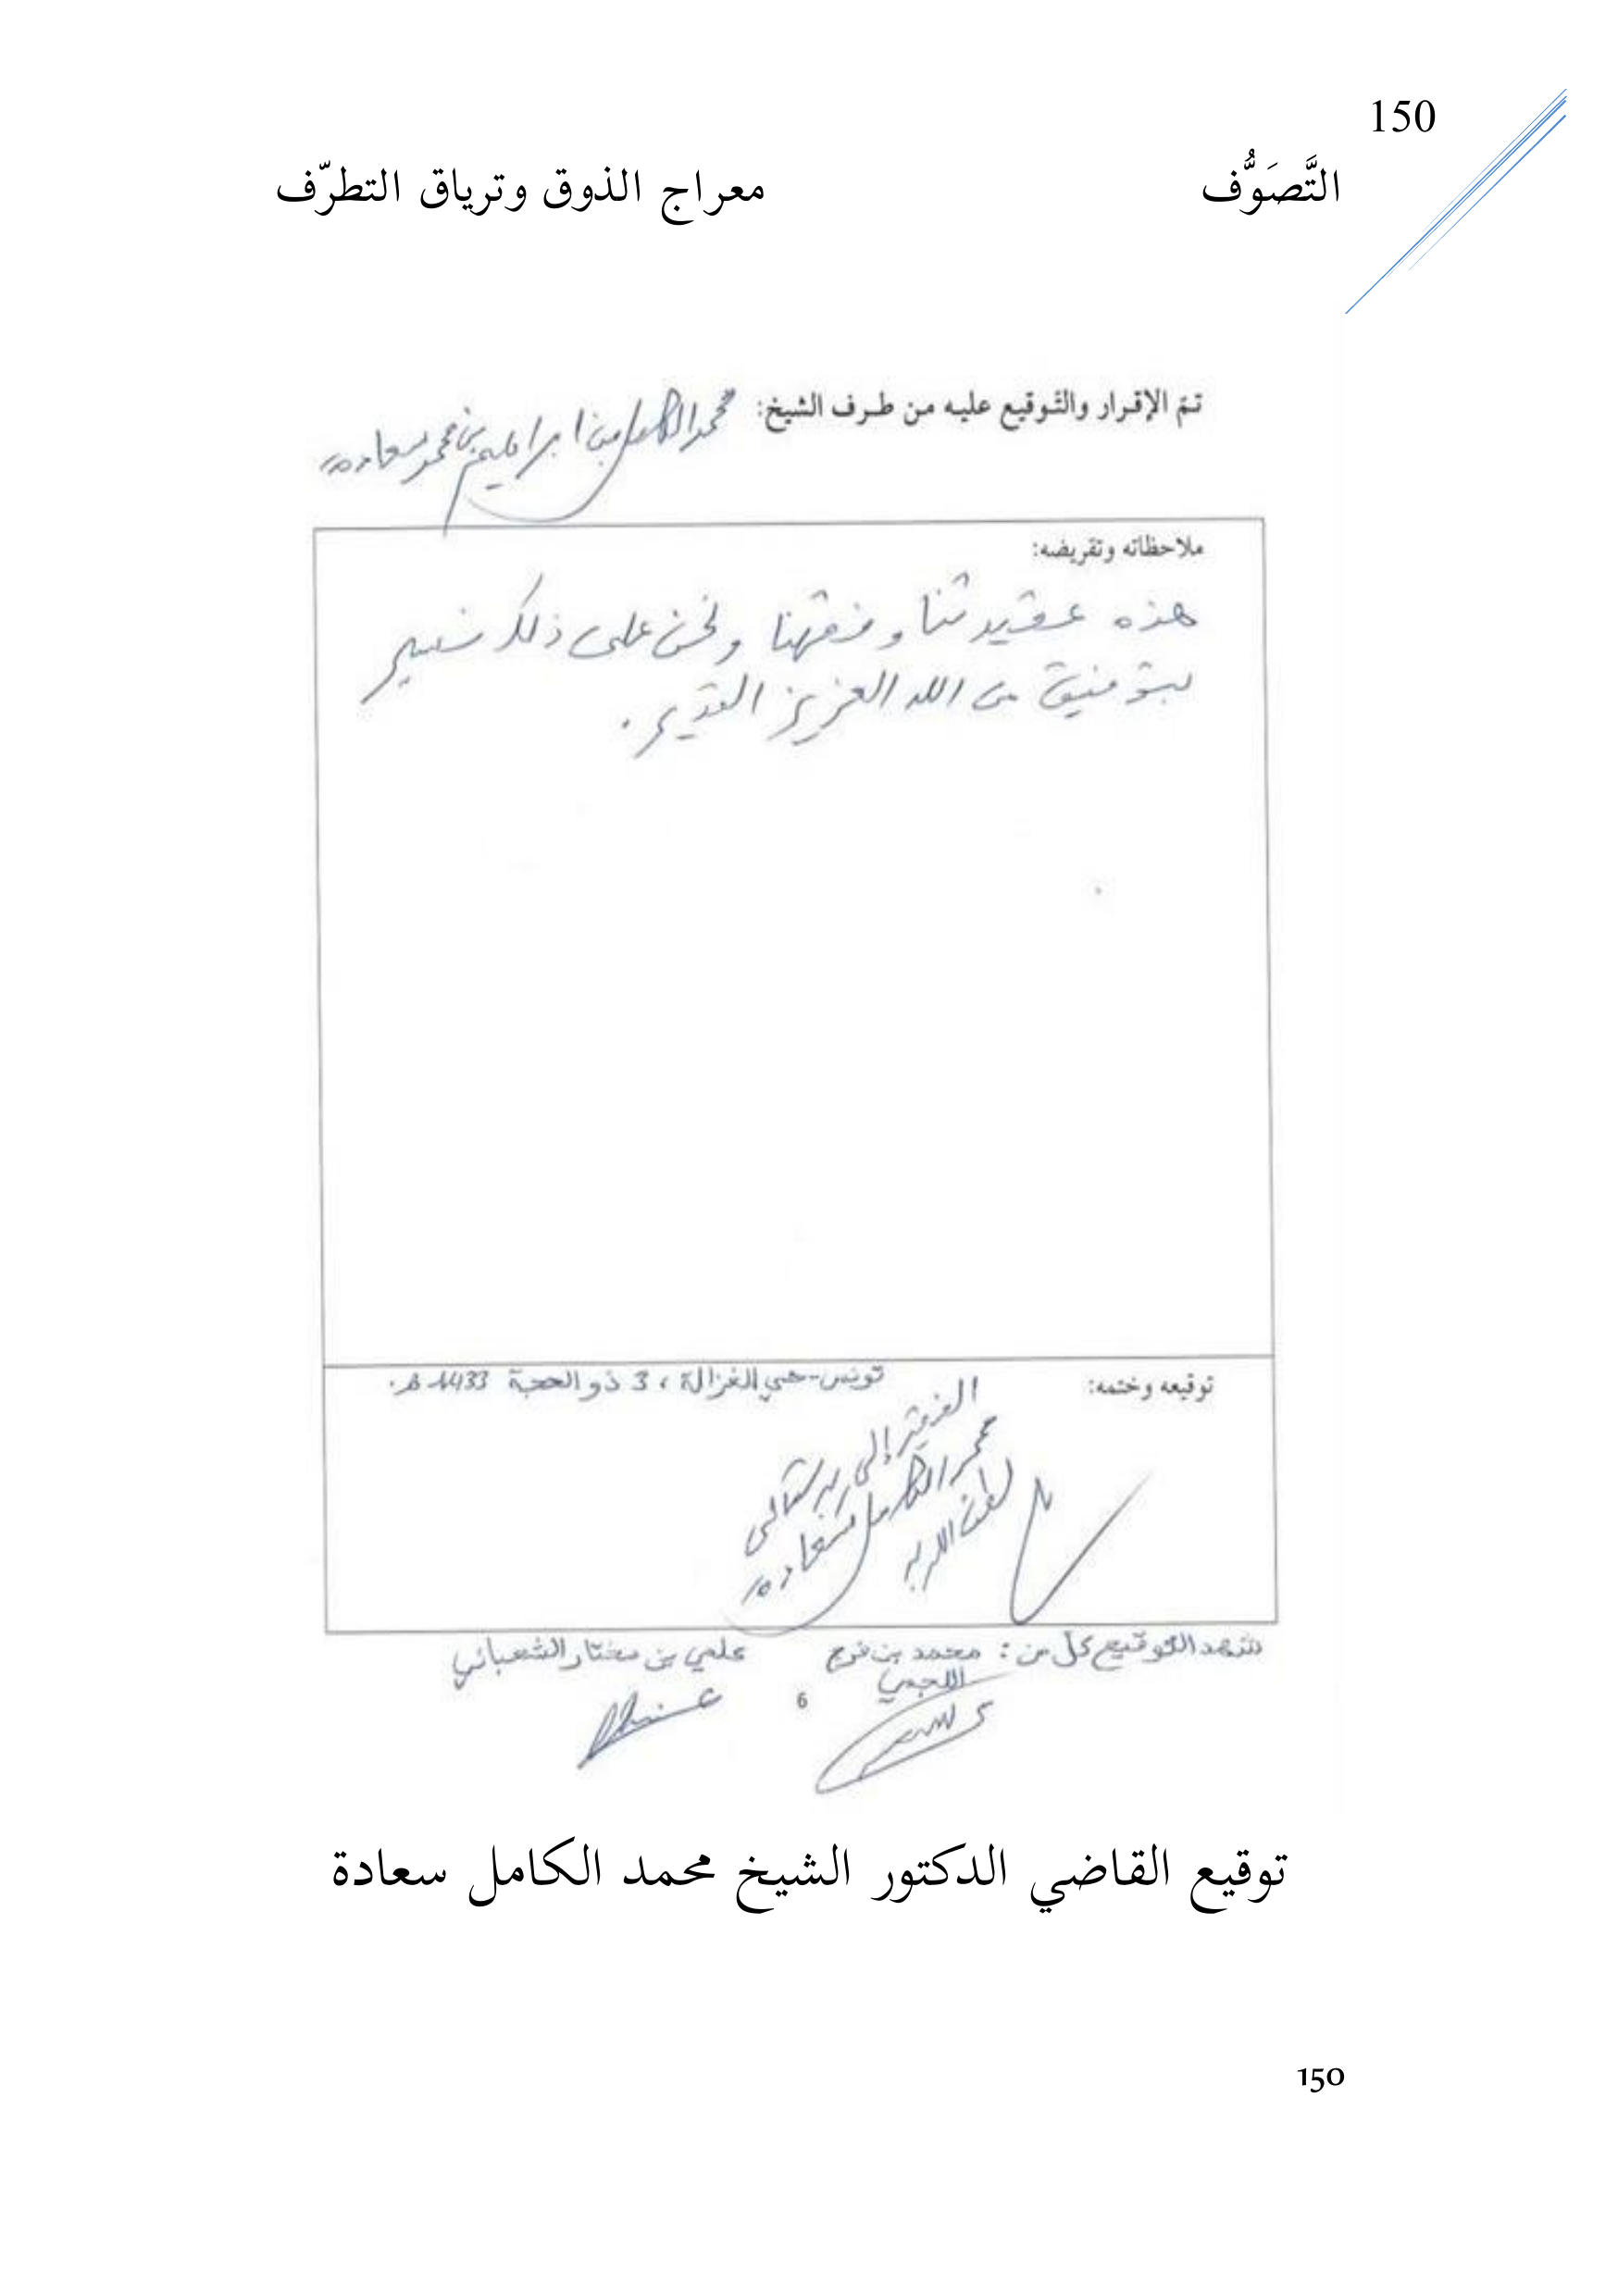 150
التَّصَوُّف معراج الذوق وترياق التطرّف
تمّ الإقرار والتّوقيع عليه من طرف الشيخ: محمد الكامل بن ابراهيم بن محمد سعادة
ملاحظاته وتقريضه:
هذه عقيدتنا وفقهنا ونحن على ذلك نسير
بتوفيق من الله العزيز القدير.
توقيعه وختمه: تونس-حي الغزالة، 3 ذو الحجة 1433 هـ.
الفقير إلى ربه تعالى
محمد الكامل سعادة
لطف الله به
شهد التوقيع كلّ من: محمد بن فرج علي بن مختار الشعباني
اللجمي
6
توقيع القاضي الدكتور الشيخ محمد الكامل سعادة
150